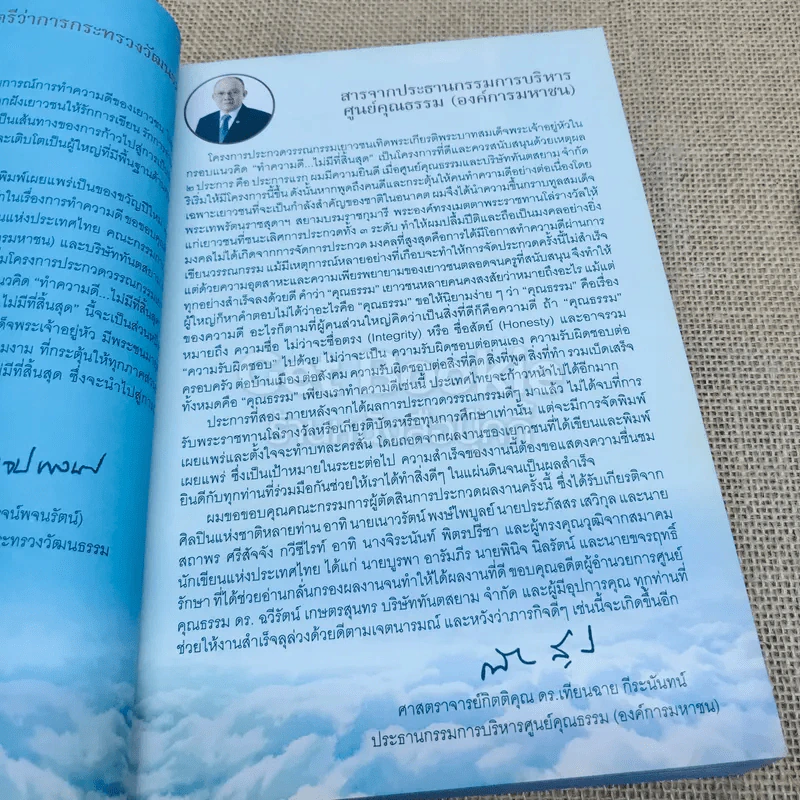 ตรีว่าการกระทรวงวัฒน
ารณ์การทำความดีของเยาวชน
กฝังเยาวชนให้รักการเขียน รักกา
เป็นเส้นทางของการก้าวไปสู่การเป็
จะเติบโตเป็นผู้ใหญ่ที่มีพื้นฐานด้าน
พิมพ์เผยแพร่เป็นของขวัญปีใหม่
ในเรื่องการทำความดี ขอขอบคุณ
นแห่งประเทศไทย คณะกรรมก
รมหาชน) และบริษัททันตสยาม
โครงการประกวดวรรณกรรม
วคิด “ทำความดี...ไม่มีที่สิ้นสุด
ไม่มีที่สิ้นสุด” นี้จะเป็นส่วนหนึ่
ด็จพระเจ้าอยู่หัว มีพระชนม
มงาม ที่กระตุ้นให้ทุกภาคส่วน
มีที่สิ้นสุด ซึ่งจะนำไปสู่กา
จน์พจนรัตน์)
ะทรวงวัฒนธรรม
สารจากประธานกรรมการบริหาร
ศูนย์คุณธรรม (องค์การมหาชน)
โครงการประกวดวรรณกรรมเยาวชนเทิดพระเกียรติพระบาทสมเด็จพระเจ้าอยู่หัวใน
กรอบแนวคิด “ทำความดี...ไม่มีที่สิ้นสุด” เป็นโครงการที่ดีและควรสนับสนุนด้วยเหตุผล
๒ ประการ คือ ประการแรก ผมมีความยินดี เมื่อศูนย์คุณธรรมและบริษัททันตสยาม จำกัด
ริเริ่มให้มีโครงการนี้ขึ้น ดังนั้นหากพูดถึงคนดีและกระตุ้นให้คนทำความดีอย่างต่อเนื่องโดย
เฉพาะเยาวชนที่จะเป็นกำลังสำคัญของชาติในอนาคต ผมจึงได้นำความขึ้นกราบทูลสมเด็จ
พระเทพรัตนราชสุดาฯ สยามบรมราชกุมารี พระองค์ทรงเมตตาพระราชทานโล่รางวัลให้
แก่เยาวชนที่ชนะเลิศการประกวดทั้ง ๓ ระดับ ทำให้ผมปลื้มปีติและถือเป็นมงคลอย่างยิ่ง
มงคลไม่ได้เกิดจากการจัดการประกวด มงคลที่สูงสุดคือการได้มีโอกาสทำความดีผ่านการ
เขียนวรรณกรรม แม้มีเหตุการณ์หลายอย่างที่เกือบจะทำให้การจัดประกวดครั้งนี้ไม่สำเร็จ
แต่ด้วยความอุตสาหะและความเพียรพยายามของเยาวชนตลอดจนครูที่สนับสนุน จึงทำให้
ทุกอย่างสำเร็จลงด้วยดี คำว่า “คุณธรรม” เยาวชนหลายคนคงสงสัยว่าหมายถึงอะไร แม้แต่
ผู้ใหญ่ก็หาคำตอบไม่ได้ว่าอะไรคือ “คุณธรรม” ขอให้นิยามง่าย ๆ ว่า “คุณธรรม” คือเรื่อง
ของความดี อะไรก็ตามที่ผู้คนส่วนใหญ่คิดว่าเป็นสิ่งที่ดีก็คือความดี ถ้า “คุณธรรม”
หมายถึง ความซื่อ ไม่ว่าจะซื่อตรง (Integrity) หรือ ซื่อสัตย์ (Honesty) และอาจรวม
“ความรับผิดชอบ” ไปด้วย ไม่ว่าจะเป็น ความรับผิดชอบต่อตนเอง ความรับผิดชอบต่อ
ครอบครัว ต่อบ้านเมือง ต่อสังคม ความรับผิดชอบต่อสิ่งที่คิด สิ่งที่พูด สิ่งที่ทำ รวมเบ็ดเสร็จ
ทั้งหมดคือ “คุณธรรม” เพียงเราทำความดีเช่นนี้ ประเทศไทยจะก้าวหน้าไปได้อีกมาก
ประการที่สอง ภายหลังจากได้ผลการประกวดวรรณกรรมดีๆ มาแล้ว ไม่ได้จบที่การ
รับพระราชทานโล่รางวัลหรือเกียรติบัตรหรือทุนการศึกษาเท่านั้น แต่จะมีการจัดพิมพ์
เผยแพร่และตั้งใจจะทำบทละครสั้น โดยถอดจากผลงานของเยาวชนที่ได้เขียนและพิมพ์
เผยแพร่ ซึ่งเป็นเป้าหมายในระยะต่อไป ความสำเร็จของงานนี้ต้องขอแสดงความชื่นชม
ยินดีกับทุกท่านที่ร่วมมือกันช่วยให้เราได้ทำสิ่งดีๆ ในแผ่นดินจนเป็นผลสำเร็จ
ผมขอขอบคุณคณะกรรมการผู้ตัดสินการประกวดผลงานครั้งนี้ ซึ่งได้รับเกียรติจาก
ศิลปินแห่งชาติหลายท่าน อาทิ นายเนาวรัตน์ พงษ์ไพบูลย์ นายประภัสสร เสวิกุล และนาย
สถาพร ศรีสัจจัง กวีซีไรท์ อาทิ นางจิระนันท์ พิตรปรีชา และผู้ทรงคุณวุฒิจากสมาคม
นักเขียนแห่งประเทศไทย ได้แก่ นายบูรพา อารัมภีร นายพินิจ นิลรัตน์ และนายขจรฤทธิ์
รักษา ที่ได้ช่วยอ่านกลั่นกรองผลงานจนทำให้ได้ผลงานที่ดี ขอบคุณอดีตผู้อำนวยการศูนย์
คุณธรรม ดร. ฉวีรัตน์ เกษตรสุนทร บริษัททันตสยาม จำกัด และผู้มีอุปการคุณ ทุกท่านที่
ช่วยให้งานสำเร็จลุล่วงด้วยดีตามเจตนารมณ์ และหวังว่าภารกิจดีๆ เช่นนี้จะเกิดขึ้นอีก
ศาสตราจารย์กิตติคุณ ดร.เทียนฉาย กีระนันทน์
ประธานกรรมการบริหารศูนย์คุณธรรม (องค์การมหาชน)